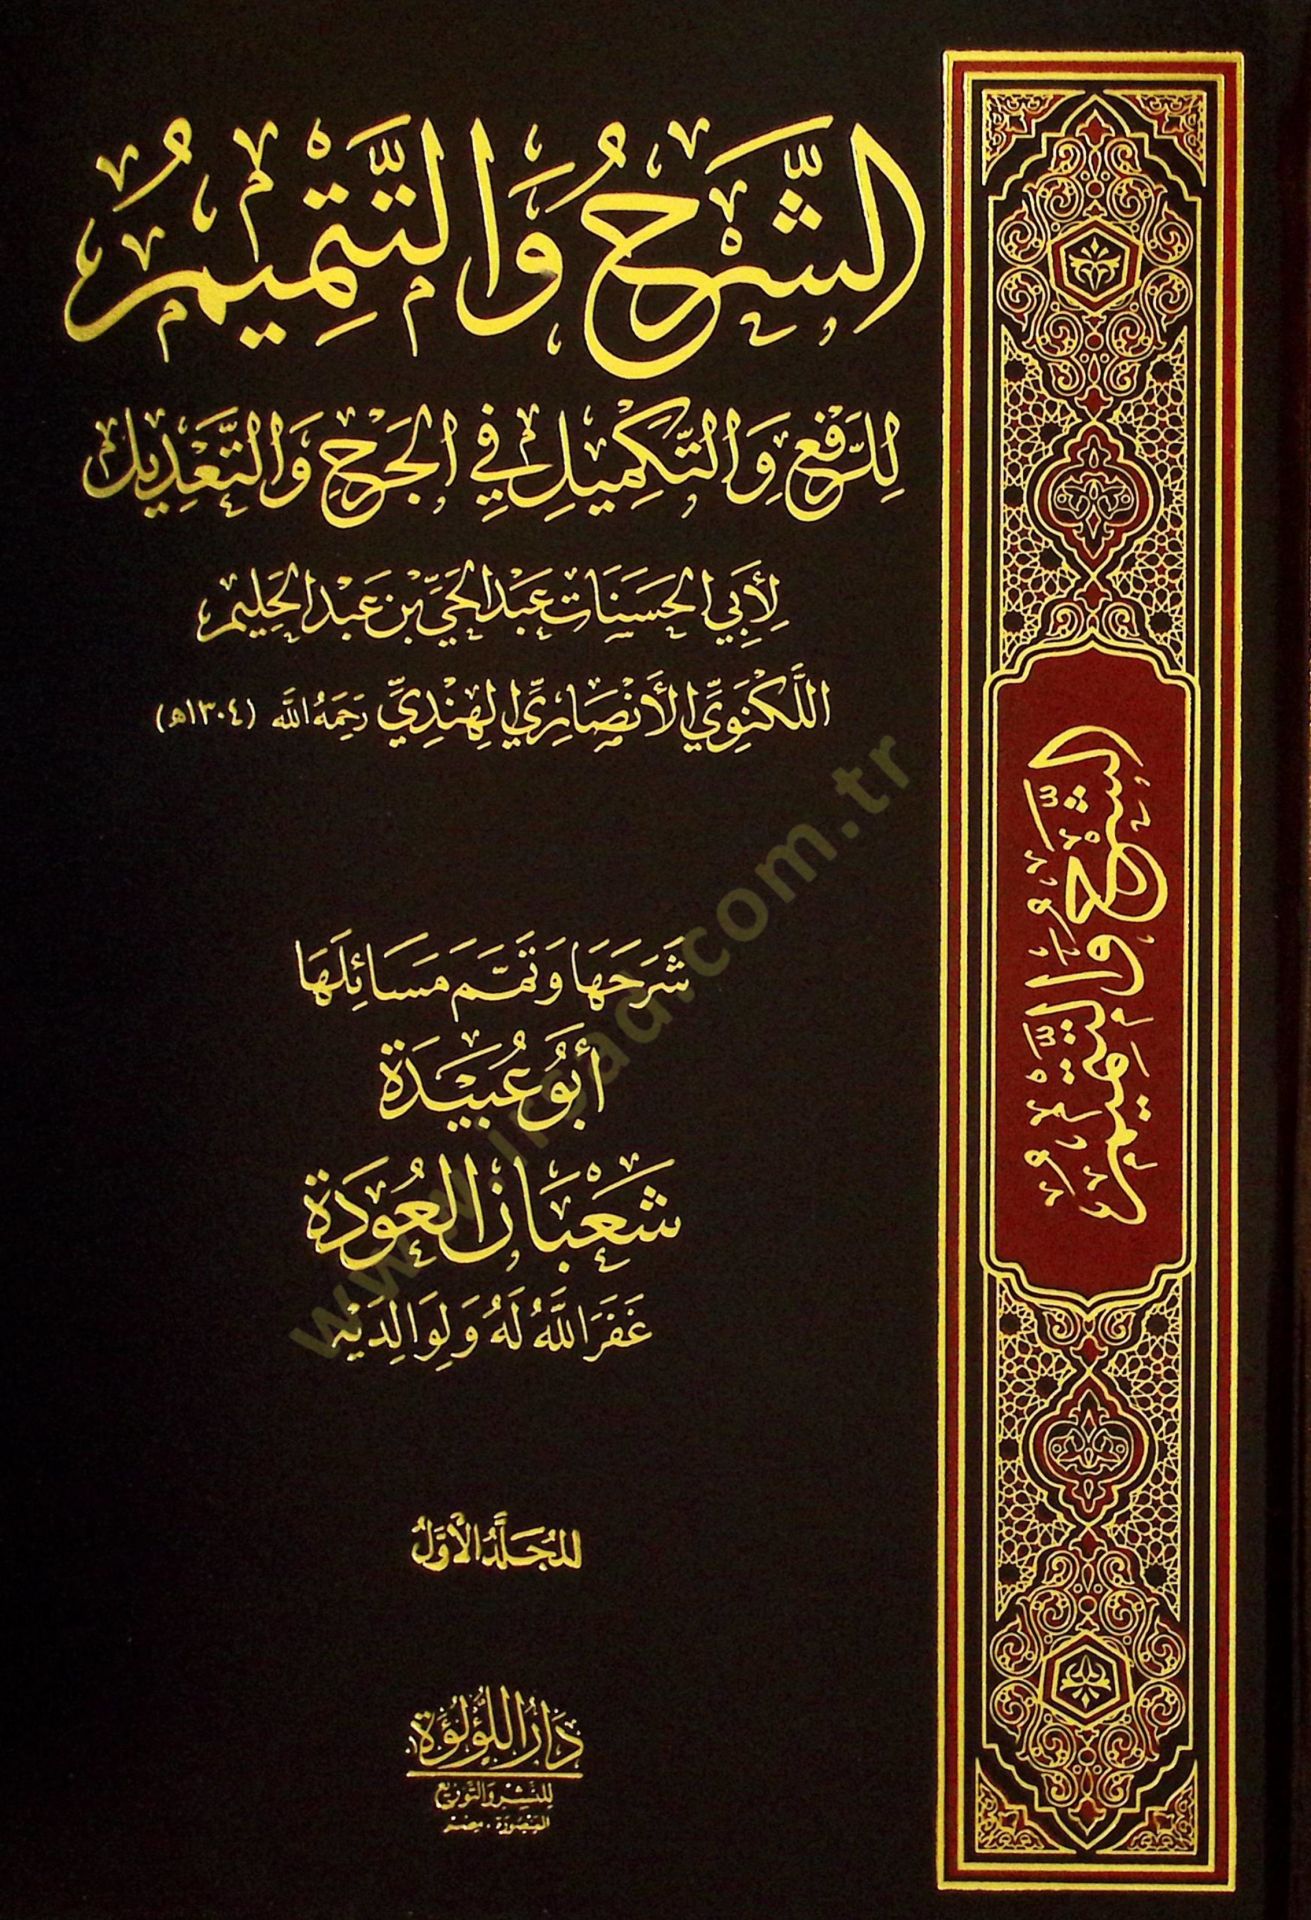 الشَّرْحُ وَالتَّتْمِيمُ
لِلرَّفْعِ وَالتَّكْمِيلِ فِي الجَرْحِ وَالتَّعْدِيلِ
لِأَبِي الحَسَنَاتِ عَبْدِ الحَيِّ بْنِ عَبْدِ الحَلِيمِ
اللَّكْنَوِيِّ الأَنْصَارِيِّ الهِنْدِيِّ رَحِمَهُ اللَّه (١٣٠٤هـ)
شَرَحَهَا وَتَمَّمَ مَسَائِلَهَا
أَبُو عُبَيْدَة
شَعْبَان العُودَة
غَفَرَ اللَّهُ لَهُ وَلِوَالِدَيْهِ
المُجَلَّدُ الأَوَّلُ
دَارُ اللُّؤْلُؤَةِ
لِلنَّشْرِ وَالتَّوْزِيعِ
المَنْصُورَة - مِصْر
الشَّرْحُ وَالتَّتْمِيمُ
www.irsad.com.tr